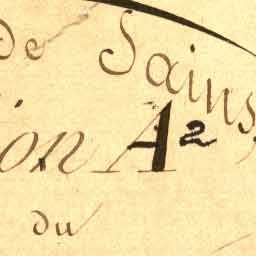 de Sains
ion A2
du